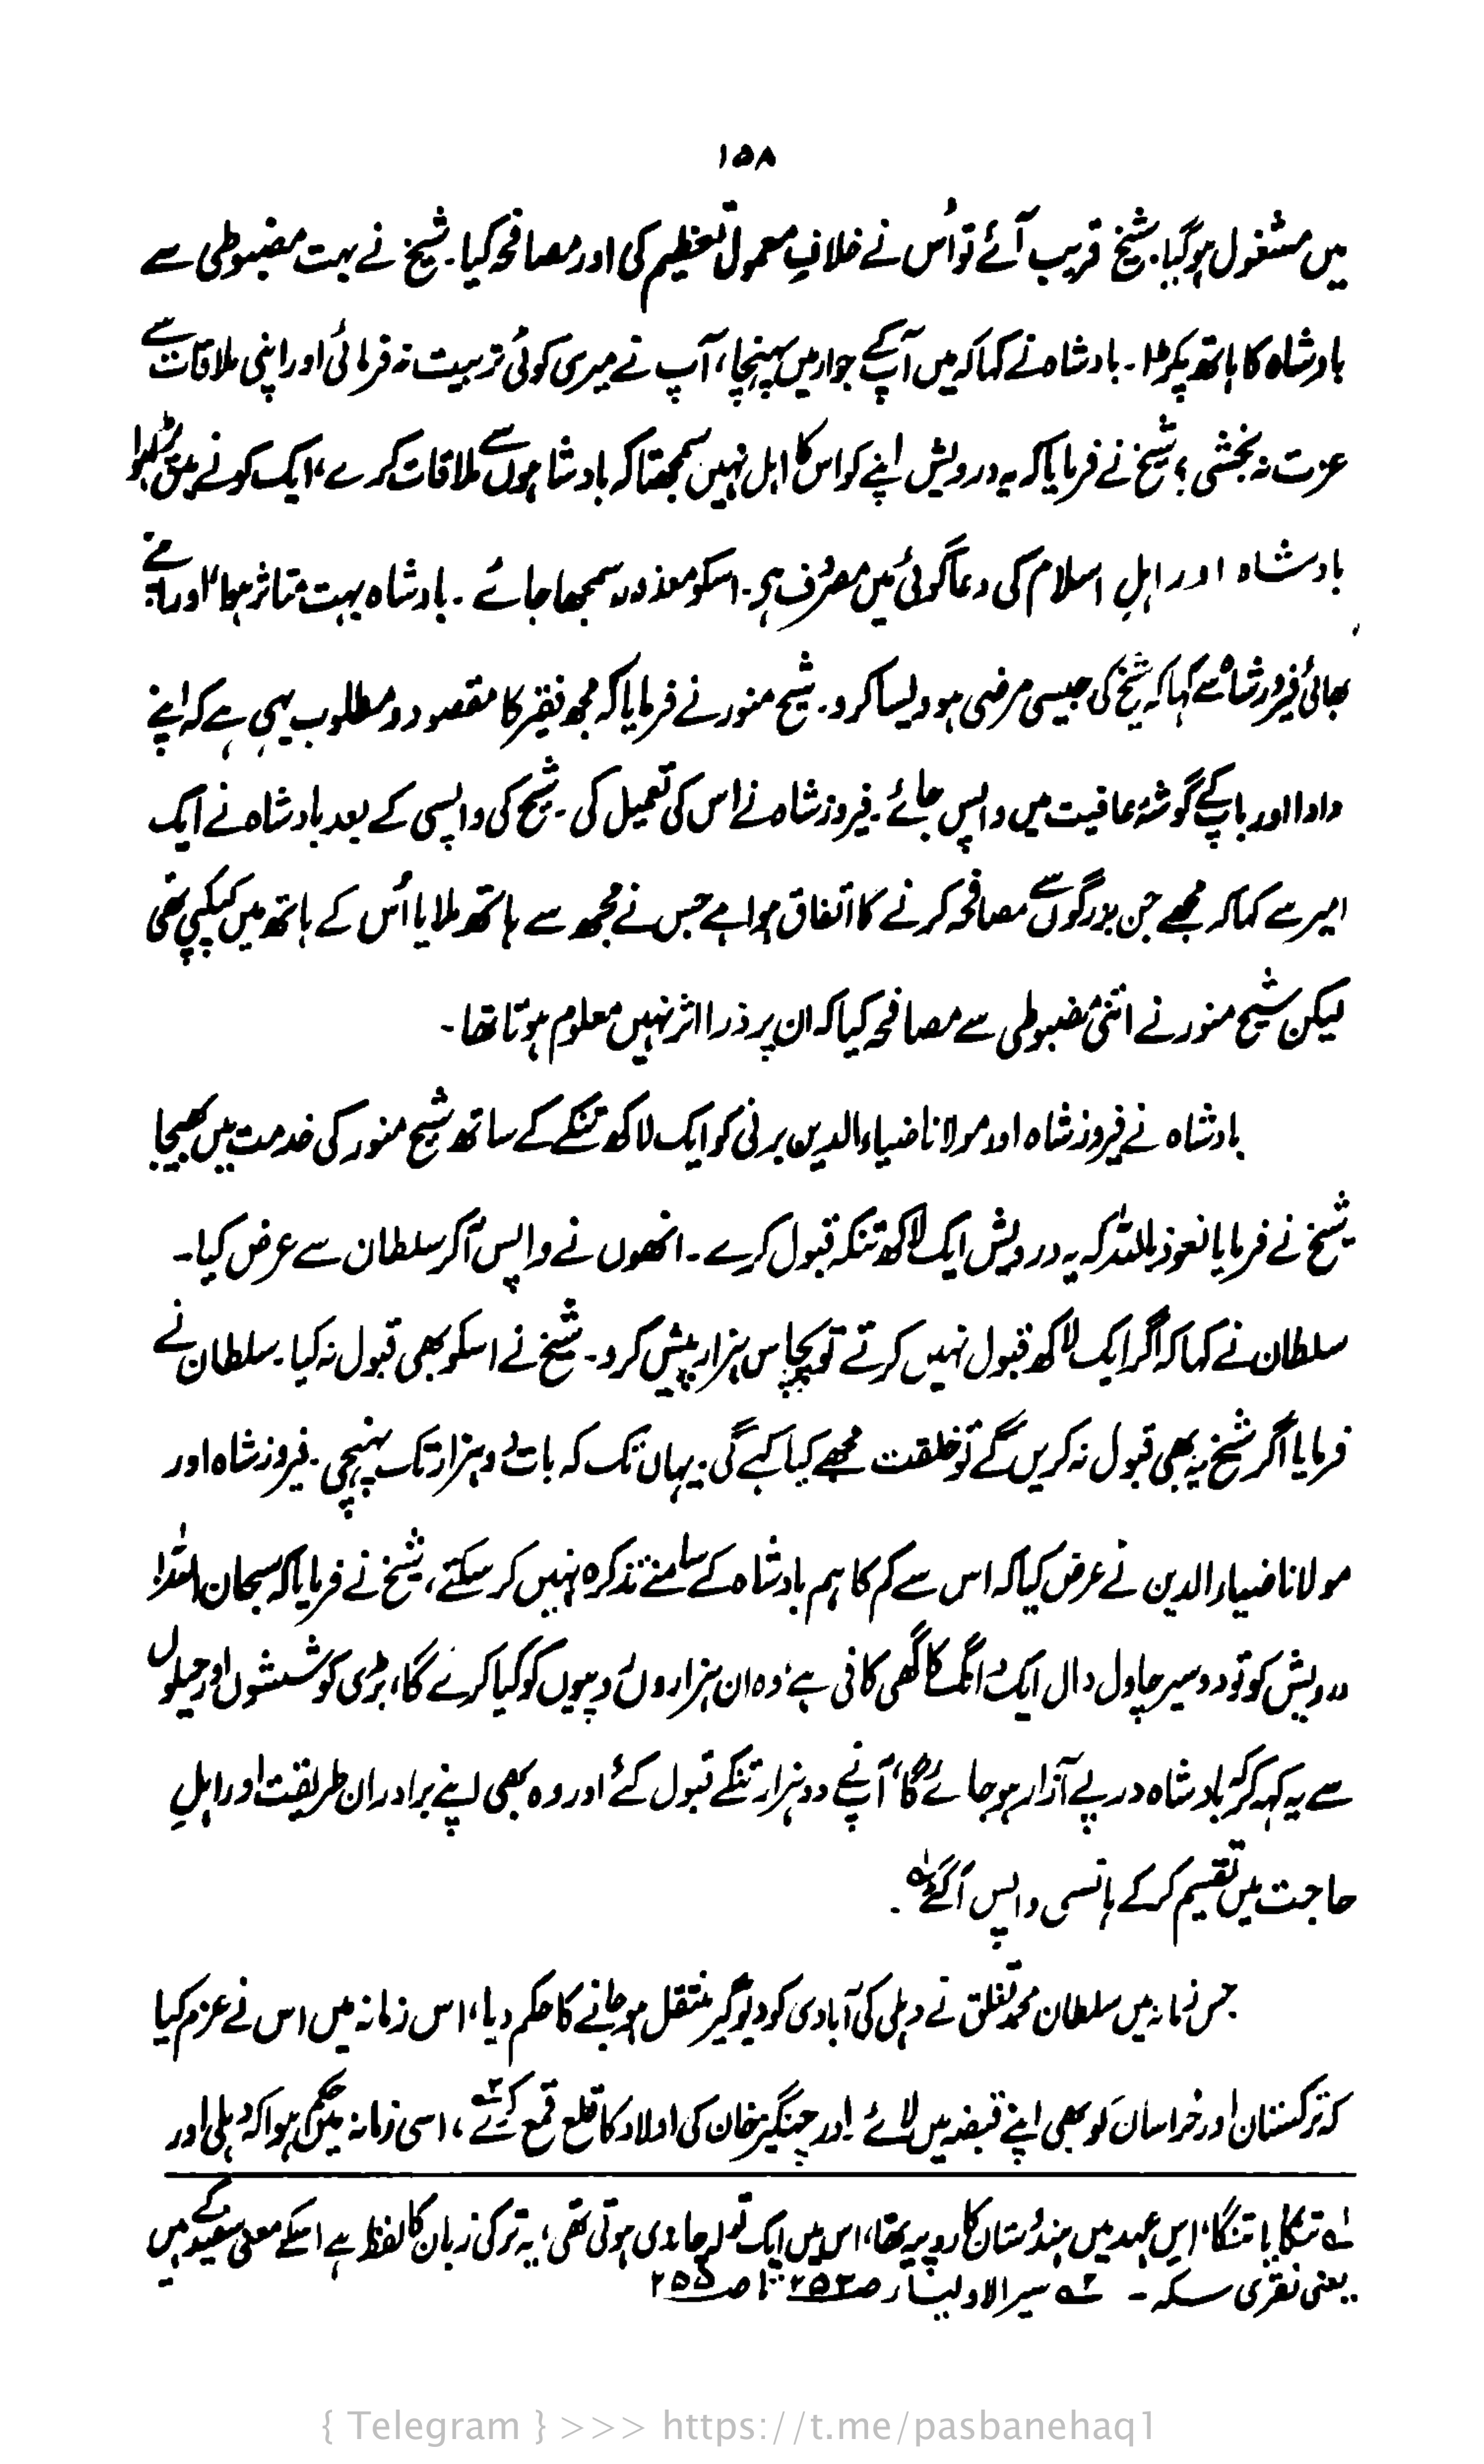 ۱۵۸
میں مشغول ہوگیا۔ شیخ قریب آئے تو اُس نے خلافِ معمول تعظیم کی اور مصافحہ کیا۔ شیخ نے بہت مضبوطی سے
بادشاہ کا ہاتھ پکڑا۔ بادشاہ نے کہا کہ میں آپ کے جوار میں پہنچا، آپ نے میری کوئی تربیت نہ فرمائی اور اپنی ملاقات سے
عزت نہ بخشی؟ شیخ نے فرمایا کہ یہ درویش اپنے کو اس کا اہل نہیں سمجھتا کہ بادشاہوں سے ملاقات کرے، ایک کونے میں پڑا ہوا
بادشاہ اور اہلِ اسلام کی دعا گوئی میں مصروف ہے۔ اسکو معذور سمجھا جائے۔ بادشاہ بہت متاثر ہوا اور اپنے
بھائی فیروز شاہ سے کہا کہ شیخ کی جیسی مرضی ہو ویسا کرو۔ شیخ منور نے فرمایا کہ مجھ فقیر کا مقصود و مطلوب یہی ہے کہ اپنے
دادا اور باپ کے گوشۂ عافیت میں واپس جائے۔ فیروز شاہ نے اس کی تعمیل کی۔ شیخ کی واپسی کے بعد بادشاہ نے ایک
امیر سے کہا کہ مجھے جن بزرگوں سے مصافحہ کرنے کا اتفاق ہوا ہے جس نے مجھ سے ہاتھ ملایا اُس کے ہاتھ میں کپکپی تھی
لیکن شیخ منور نے اتنی مضبوطی سے مصافحہ کیا کہ ان پر ذرا اثر نہیں معلوم ہوتا تھا۔
بادشاہ نے فیروز شاہ اور مولانا ضیاء الدین برنی کو ایک لاکھ تنکے کے ساتھ شیخ منور کی خدمت میں بھیجا
شیخ نے فرمایا نعوذ باللہ کہ یہ درویش ایک لاکھ تنکہ قبول کرے۔ انھوں نے واپس آکر سلطان سے عرض کیا۔
سلطان نے کہا کہ اگر ایک لاکھ قبول نہیں کرتے تو پچاس ہزار پیش کرو۔ شیخ نے اسکو بھی قبول نہ کیا۔ سلطان نے
فرمایا اگر شیخ یہ بھی قبول نہ کریں گے تو خلقت مجھے کیا کہے گی۔ یہاں تک کہ بات دو ہزار تک پہنچی۔ فیروز شاہ اور
مولانا ضیاء الدین نے عرض کیا کہ اس سے کم کا ہم بادشاہ کے سامنے تذکرہ نہیں کر سکتے، شیخ نے فرمایا کہ سبحان اللہ!
درویش کو تو دو سیر چاول دال ایک دانگ کا گھی کافی ہے، وہ ان ہزاروں روپیوں کو کیا کرے گا، بڑی کوششوں اور حیلوں
سے یہ کہہ کر کہ بادشاہ درپے آزار ہو جائے گا، آپ نے دو ہزار تنکے قبول کئے اور وہ بھی اپنے برادران طریقت اور اہلِ
حاجت میں تقسیم کرکے ہانسی واپس آگئے ۲ھ۔
جس زمانہ میں سلطان محمد تغلق نے دہلی کی آبادی کو دیوگیر منتقل ہو جانے کا حکم دیا، اس زمانہ میں اس نے عزم کیا
کہ ترکستان اور خراسان کو بھی اپنے قبضہ میں لائے اور چنگیز خان کی اولاد کا قلع قمع کرے، اسی زمانہ میں حکم ہوا کہ دہلی اور
لہ تنکا یا تنگا، اس عہد میں ہندوستان کا روپیہ تھا، اس میں ایک تولہ چاندی ہوتی تھی، یہ ترکی زبان کا لفظ ہے اسکے معنی سفید کے ہیں
یعنی نقرئی سکہ۔ ۲ھ سیر الاولیاء ص۲۵۳ تا ص۲۵۵
{ Telegram } >>> https://t.me/pasbanehaq1